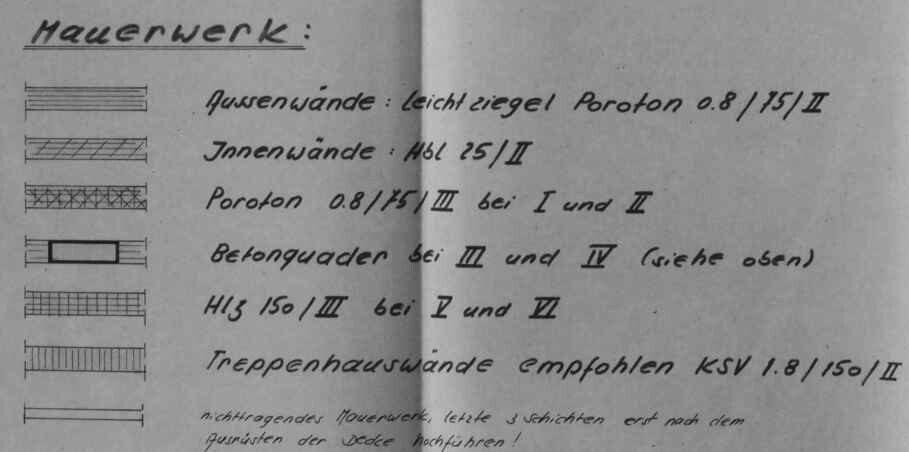 Mauerwerk:
Aussenwände: Leichtziegel Poroton 0.8/75/II
Innenwände: Hbl 25/II
Poroton 0.8/75/III bei I und II
Betonquader bei III und IV (siehe oben)
Hlz 150/III bei V und VI
Treppenhauswände empfohlen KSV 1.8/150/II
nichttragendes Mauerwerk, letzte 3 Schichten erst nach dem
Ausrüsten der Decke hochführen!